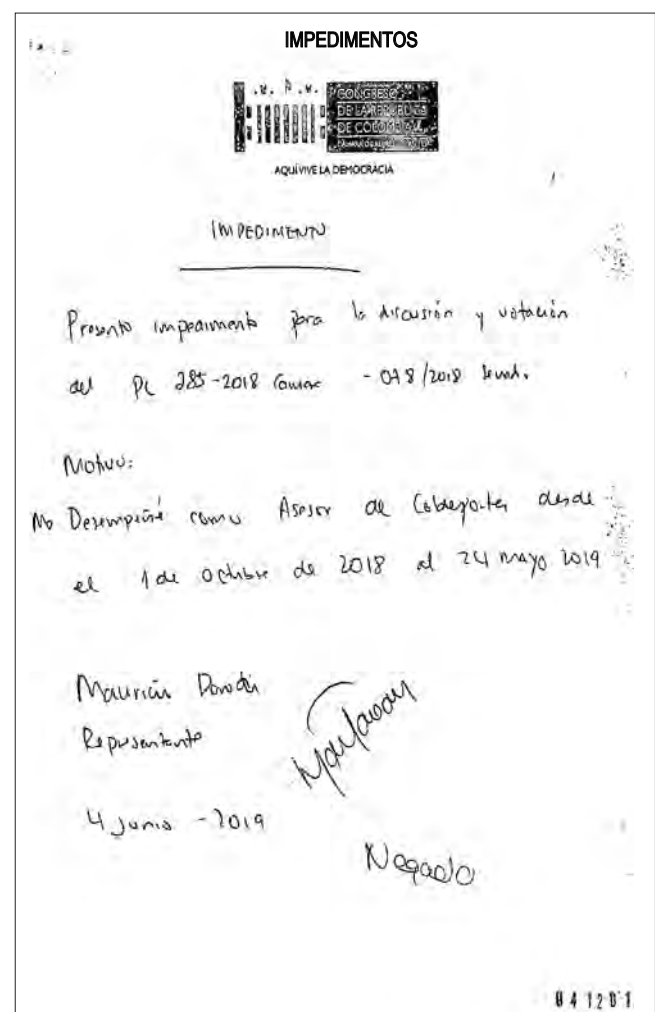 IMPEDIMENTOS
CONGRESO
DE LA REPÚBLICA
DE COLOMBIA
AQUÍ VIVE LA DEMOCRACIA
IMPEDIMENTO
Presento impedimento para la discusión y votación
del PL 285-2018 Camara - 078/2018 Senad.
Motivo:
Me Desempeñé como Asesor de Coldeportes desde
el 1 de Octubre de 2018 al 24 mayo 2019
Mauricio
Representante
4 Junio - 2019
Negado
041201